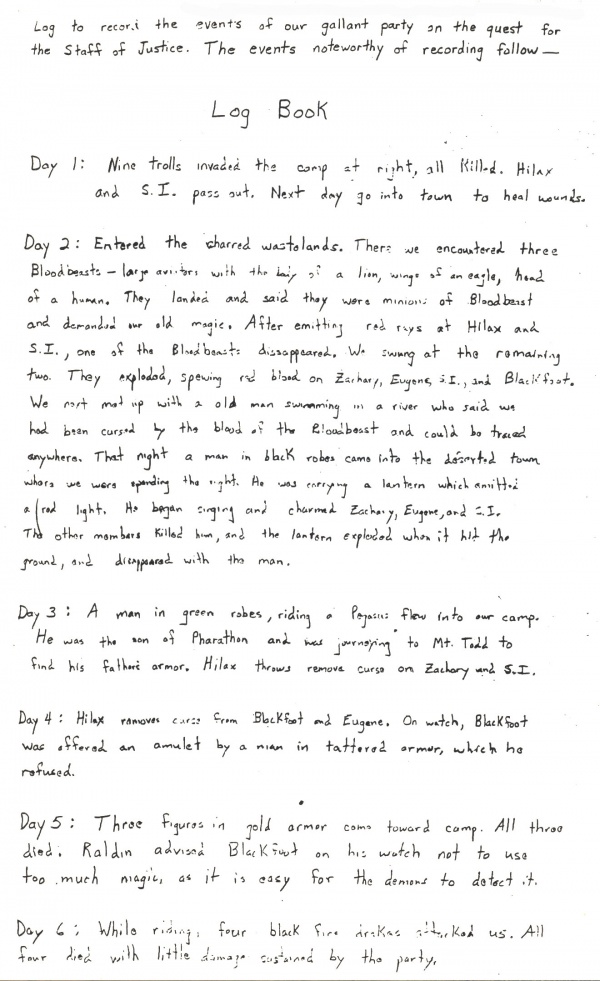 Log to record the events of our gallant party on the quest for
the Staff of Justice. The events noteworthy of recording follow—
Log Book
Day 1: Nine trolls invaded the camp at night, all Killed. Hilax
and S.I. pass out. Next day go into town to heal wounds.
Day 2: Entered the charred wastelands. There we encountered three
Bloodbeasts – large aviators with the body of a lion, wings of an eagle, head
of a human. They landed and said they were minions of Bloodbeast
and demanded our old magic. After emitting red rays at Hilax and
S.I., one of the Bloodbeasts dissappeared. We swung at the remaining
two. They exploded, spewing red blood on Zachary, Eugene, S.I., and Blackfoot.
We next met up with a old man swimming in a river who said we
had been cursed by the blood of the Bloodbeast and could be traced
anywhere. That night a man in black robes came into the deserted town
where we were spending the night. He was carrying a lantern which emitted
a red light. He began singing and charmed Zachary, Eugene, and S.I.
The other members Killed him, and the lantern exploded when it hit the
ground, and disappeared with the man.
Day 3: A man in green robes, riding a Pegasus flew into our camp.
He was the son of Pharathon and was journeying to Mt. Todd to
find his fathers armor. Hilax throws remove curse on Zachary and S.I.
Day 4: Hilax removes curse from Blackfoot and Eugene. On watch, Blackfoot
was offered an amulet by a man in tattered armor, which he
refused.
Day 5: Three figures in gold armor come toward camp. All three
died. Raldin advised Blackfoot on his watch not to use
too much magic, as it is easy for the demons to detect it.
Day 6: While riding, four black fire drakes attacked us. All
four died with little damage sustained by the party.